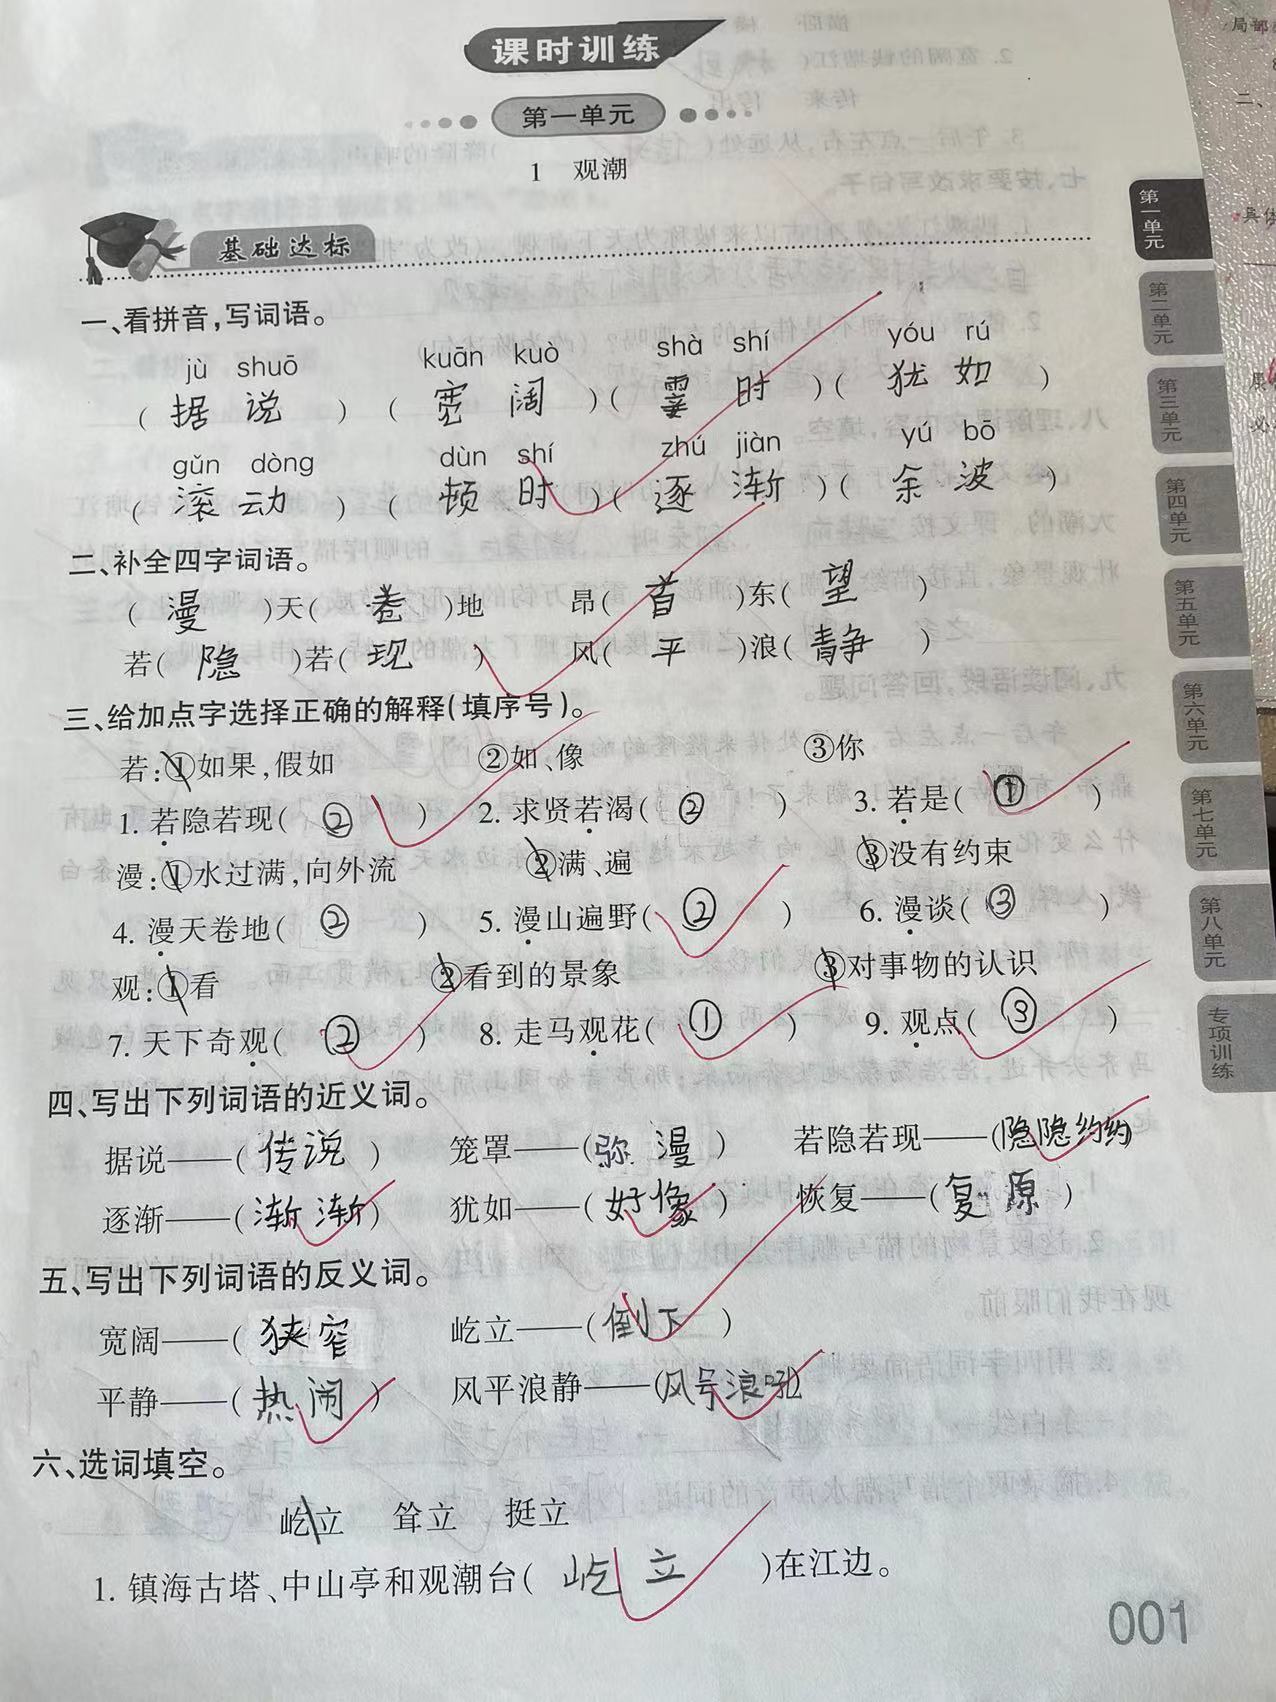 课时训练
第一单元
1 观潮
基础达标
一、看拼音,写词语。
jù shuō kuān kuò shà shí yóu rú
(据说)(宽阔)(霎时)(犹如)
gǔn dòng dùn shí zhú jiàn yú bō
(滚动)(顿时)(逐渐)(余波)
二、补全四字词语。
(漫)天(卷)地 昂(首)东(望)
若(隐)若(现) 风(平)浪(静)
三、给加点字选择正确的解释(填序号)。
若:①如果,假如 ②如、像 ③你
1. 若隐若现(②) 2. 求贤若渴(②) 3. 若是(①)
漫:①水过满,向外流 ②满、遍 ③没有约束
4. 漫天卷地(②) 5. 漫山遍野(②) 6. 漫谈(③)
观:①看 ②看到的景象 ③对事物的认识
7. 天下奇观(②) 8. 走马观花(①) 9. 观点(③)
四、写出下列词语的近义词。
据说——(传说) 笼罩——(弥漫) 若隐若现——(隐隐约约)
逐渐——(渐渐) 犹如——(好像) 恢复——(复原)
五、写出下列词语的反义词。
宽阔——(狭窄) 屹立——(倒下)
平静——(热闹) 风平浪静——(风号浪吼)
六、选词填空。
屹立 耸立 挺立
1. 镇海古塔、中山亭和观潮台(屹立)在江边。
001
第一单元
第二单元
第三单元
第四单元
第五单元
第六单元
第七单元
第八单元
专项训练
局部
二、
具体